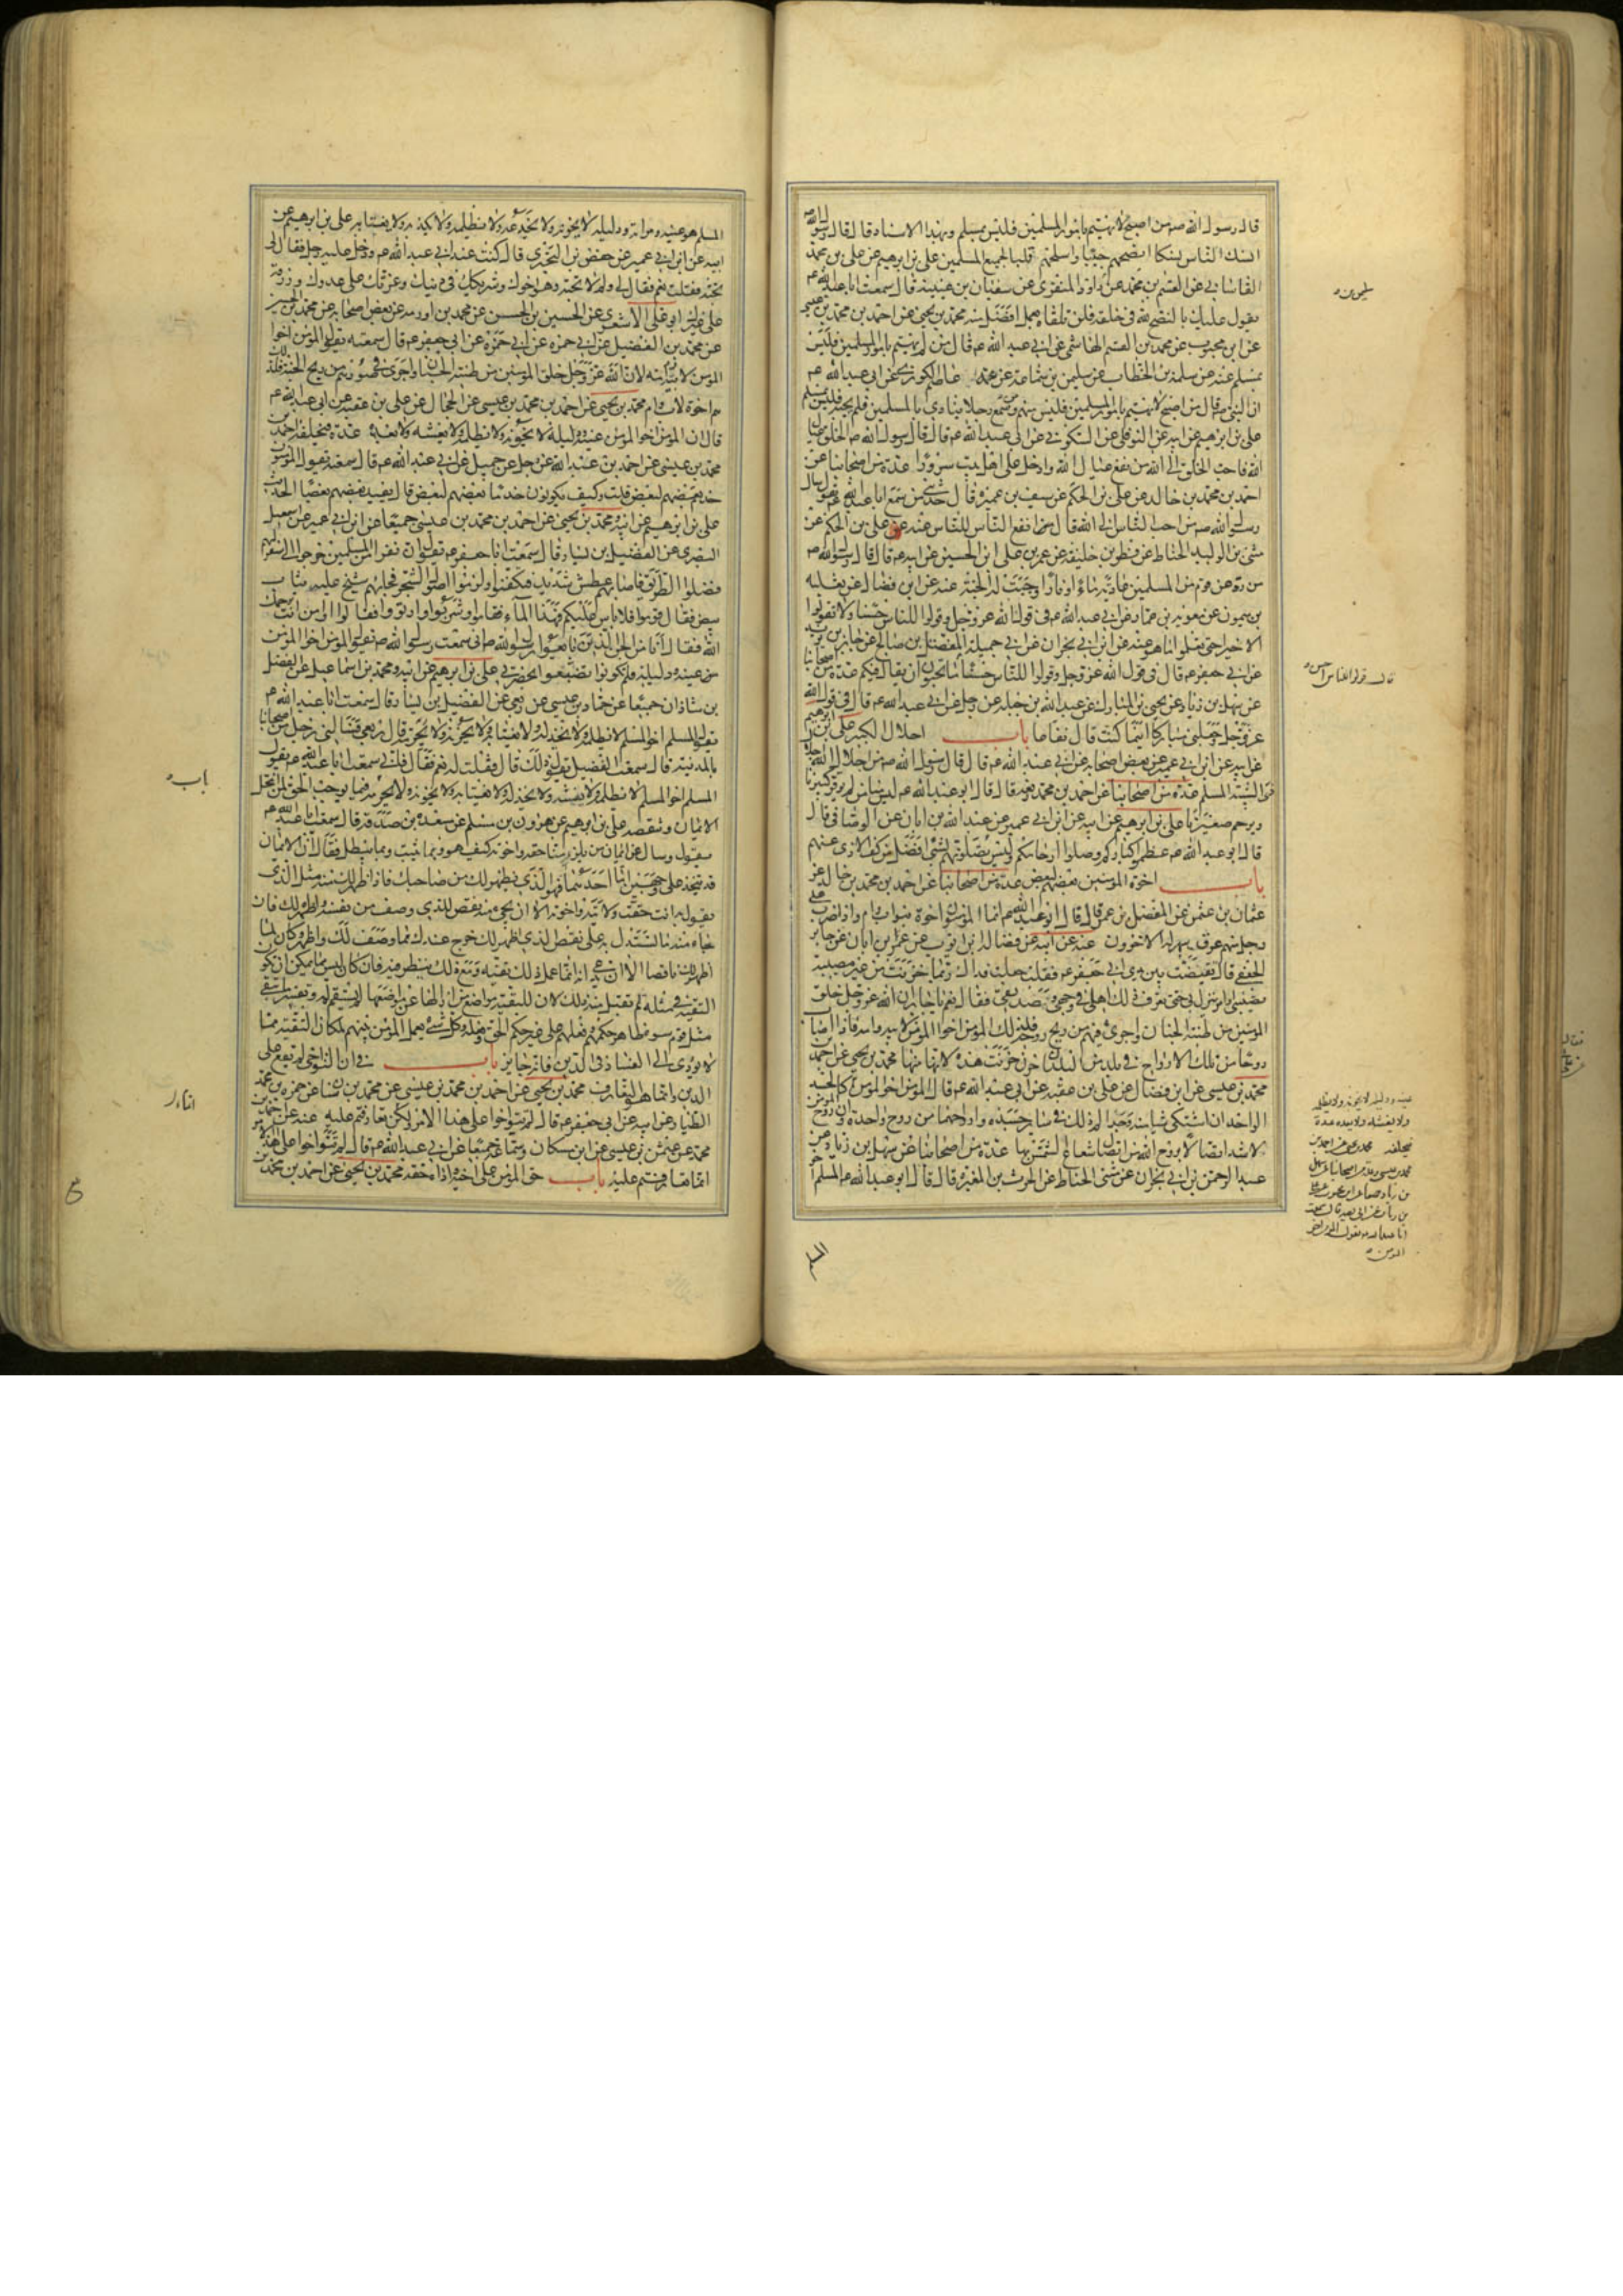 قال رسول الله ص من اصبح لا يهتم بامور المسلمين فليس بمسلم وبهذا الاسناد قال قال رسول الله ص
انسك الناس نسكا انصحهم جيبا واسلمهم قلبا لجميع المسلمين علي بن ابرهيم عن علي بن محمد
القاساني عن القسم بن محمد عن داود المنقري عن سفيان بن عيينة قال سمعت ابا عبد الله ع
يقول عليك بالنصح لله في خلقه فلن تلقاه بعمل افضل منه محمد بن يحيى عن احمد بن محمد بن عيسى
عن ابن محبوب عن محمد بن القسم الهاشمي عن ابي عبد الله ع قال من لم يهتم بامور المسلمين فليس
بمسلم عنه عن سلمة بن الخطاب عن سليمن بن سماعة عن عمه عاصم الكوزي عن ابي عبد الله ع
ان النبي ص قال من اصبح لا يهتم بامور المسلمين فليس منهم ومن سمع رجلا ينادي يا للمسلمين فلم يجبه فليس بمسلم
علي بن ابرهيم عن ابيه عن النوفلي عن السكوني عن ابي عبد الله ع قال قال رسول الله ص الخلق عيال
الله فاحب الخلق الى الله من نفع عيال الله وادخل على اهل بيت سرورا عدة من اصحابنا عن
احمد بن محمد بن خالد عن علي بن الحكم عن سيف بن عميرة قال حدثني من سمع ابا عبد الله ع يقول سئل
رسول الله ص من احب الناس الى الله قال انفع الناس للناس عنه عن علي بن الحكم عن
مثنى بن الوليد الحناط عن فطر بن خليفة عن عمر بن علي بن الحسين عن ابيه ع قال قال رسول الله ص
من رد عن قوم من المسلمين عادية ماء او نارا وجبت له الجنة عنه عن ابن فضال عن ثعلبة
بن ميمون عن معوية بن عمار عن ابي عبد الله ع في قول الله عز وجل وقولوا للناس حسنا ولا تقولوا
الا خيرا حتى تعلموا ما هو عنه عن ابن ابي نجران عن ابي جميلة المفضل بن صالح عن جابر بن يزيد
عن ابي جعفر ع قال في قول الله عز وجل وقولوا للناس حسنا ما تحبون ان يقال فيكم عدة من اصحابنا
عن سهل بن زياد عن يحيى بن المبارك عن عبد الله بن جبلة عن رجل عن ابي عبد الله ع قال في قول الله
عز وجل وجعلني مباركا اينما كنت قال نفاعا باب اجلال الكبير علي بن ابرهيم
عن ابيه عن ابن ابي عمير عن بعض اصحابه عن ابي عبد الله ع قال قال رسول الله ص من اجلال الله اجلال
ذي الشيبة المسلم عدة من اصحابنا عن احمد بن محمد رفعه قال قال ابو عبد الله ع ليس منا من لم يوقر كبيرنا
ويرحم صغيرنا علي بن ابرهيم عن ابيه عن ابن ابي عمير عن عبد الله بن ابان عن الوصافي قال
قال ابو عبد الله ع عظموا كباركم وصلوا ارحامكم وليس تصلونهم بشئ افضل من كف الاذى عنهم
باب اخوة المؤمنين بعضهم لبعض عدة من اصحابنا عن احمد بن محمد بن خالد عن
عثمان بن عيسى عن المفضل بن عمر قال قال ابو عبد الله ع انما المؤمنون اخوة بنو اب وام واذا ضرب على
رجل منهم عرق سهر له الاخرون عنه عن ابيه عن فضالة بن ايوب عن عمر بن ابان عن جابر
الجعفي قال تقبضت بين يدي ابي جعفر ع فقلت جعلت فداك ربما حزنت من غير مصيبة
تصيبني او امر ينزل بي حتى يعرف ذلك اهلي في وجهي وصديقي فقال نعم يا جابر ان الله عز وجل خلق
المؤمنين من طينة الجنان واجرى فيهم من ريح روحه فلذلك المؤمن اخو المؤمن لابيه وامه فاذا اصاب
روحا من تلك الارواح في بلد من البلدان حزن حزنت هذه لانها منها محمد بن يحيى عن احمد بن
محمد بن عيسى عن ابن فضال عن علي بن عقبة عن ابي عبد الله ع قال المؤمن اخو المؤمن كالجسد
الواحد ان اشتكى شيئا منه وجد الم ذلك في سائر جسده وارواحهما من روح واحدة وان روح المؤمن
لاشد اتصالا بروح الله من اتصال شعاع الشمس بها عدة من اصحابنا عن سهل بن زياد عن
عبد الرحمن بن ابي نجران عن مثنى الحناط عن الحرث بن المغيرة قال قال ابو عبد الله ع المسلم اخو
المسلم
قال قولوا للناس احسن
المسلم هو عينه ومراته ودليله لا يخونه ولا يخدعه ولا يظلمه ولا يكذبه ولا يغتابه علي بن ابرهيم عن
ابيه عن ابن ابي عمير عن حفص بن البختري قال كنت عند ابي عبد الله ع ودخل عليه رجل فقال لي
تحبه فقلت نعم فقال لي ولم لا تحبه وهو اخوك وشريكك في دينك وعونك على عدوك ورزقه
على غيرك ابو علي الاشعري عن الحسين بن الحسن عن محمد بن اورمة عن بعض اصحابه عن محمد بن الحسين
عن محمد بن الفضيل عن ابي حمزة عن ابي جعفر ع قال سمعته يقول المؤمن اخو
المؤمن لابيه وامه لان الله عز وجل خلق المؤمنين من طينة الجنان واجرى في صورهم من ريح الجنة فلذلك
هم اخوة لاب وام محمد بن يحيى عن احمد بن محمد بن عيسى عن الحجال عن علي بن عقبة عن ابي عبد الله ع
قال ان المؤمن اخو المؤمن عينه ودليله لا يخونه ولا يظلمه ولا يغشه ولا يعده عدة فيخلفه احمد بن
محمد بن عيسى عن احمد بن عبد الله عن رجل عن جميل عن ابي عبد الله ع قال سمعته يقول المؤمنون
خدم بعضهم لبعض قلت وكيف يكونون خدما بعضهم لبعض قال يفيد بعضهم بعضا الحديث
علي بن ابرهيم عن ابيه ومحمد بن يحيى عن احمد بن محمد بن عيسى جميعا عن ابن ابي عمير عن اسمعيل
البصري عن الفضيل بن يسار قال سمعت ابا جعفر ع يقول ان نفرا من المسلمين خرجوا الى سفر لهم
فضلوا الطريق فاصابهم عطش شديد فتكفنوا ولزموا اصول الشجر فجاءهم شيخ عليه ثياب
بيض فقال قوموا فلا باس عليكم فهذا الماء فقاموا وشربوا وارتووا فقالوا من انت يرحمك
الله فقال انا من الجن الذين بايعوا رسول الله ص اني سمعت رسول الله ص يقول المؤمن اخو المؤمن
عينه ودليله فلم تكونوا تضيعوا بحضرتي علي بن ابرهيم عن ابيه ومحمد بن اسماعيل عن الفضل
بن شاذان جميعا عن حماد بن عيسى عن ربعي عن الفضيل بن يسار قال سمعت ابا عبد الله ع
يقول المسلم اخو المسلم لا يظلمه ولا يخذله ولا يغتابه ولا يخونه ولا يحرمه قال ربعي فسألني رجل من اصحابنا
بالمدينة قال سمعت الفضيل يقول ذلك قال فقلت له نعم فقال فاني سمعت ابا عبد الله ع يقول
المسلم اخو المسلم لا يظلمه ولا يغشه ولا يخذله ولا يغتابه ولا يخونه ولا يحرمه فيما يوجب الحق لمن انتحل
الايمان وينقضه علي بن ابرهيم عن هرون بن مسلم عن مسعدة بن صدقة قال سمعت ابا عبد الله ع
يقول وسئل عن ايمان من يلزمنا حقه واخوته كيف هو وبما يثبت وبما يبطل فقال ان الايمان
قد يتخذ على وجهين اما احدهما فهو الذي يظهر لك من صاحبك فاذا ظهر لك منه مثل الذي
تقول به انت حقت ولايته واخوته الا ان يجئ منه نقض للذي وصف من نفسه واظهره لك فان
جاء منه ما تستدل به على نقض الذي اظهر لك خرج عندك مما وصف لك واظهر وكان لما
اظهر لك ناقضا الا ان يدعي انه انما عمل ذلك تقية ومع ذلك ينظر فيه فان كان ليس مما يمكن ان تكون
التقية في مثله لم يقبل منه ذلك لان للتقية مواضع من ازالها عن مواضعها لم تستقم له وتفسير ما يتقى
مثل قوم سوء ظاهر حكمهم وفعلهم على غير حكم الحق وفعله فكل شئ يعمل المؤمن بينهم لمكان التقية مما
لا يؤدي الى الفساد في الدين فانه جايز باب في ان التواخي لم يقع على
الدين وانما هو التعارف محمد بن يحيى عن احمد بن محمد بن عيسى عن محمد بن سنان عن حمزة بن محمد
الطيار عن ابيه عن ابي جعفر ع قال لم تتواخوا على هذا الامر ولكن تعارفتم عليه عنه عن احمد بن
محمد عن عثمن بن عيسى عن ابن مسكان وسماعة جميعا عن ابي عبد الله ع قال لم تتواخوا على هذا الامر
انما تعارفتم عليه باب حق المؤمن على اخيه واداء حقه محمد بن يحيى عن احمد بن محمد بن
باب